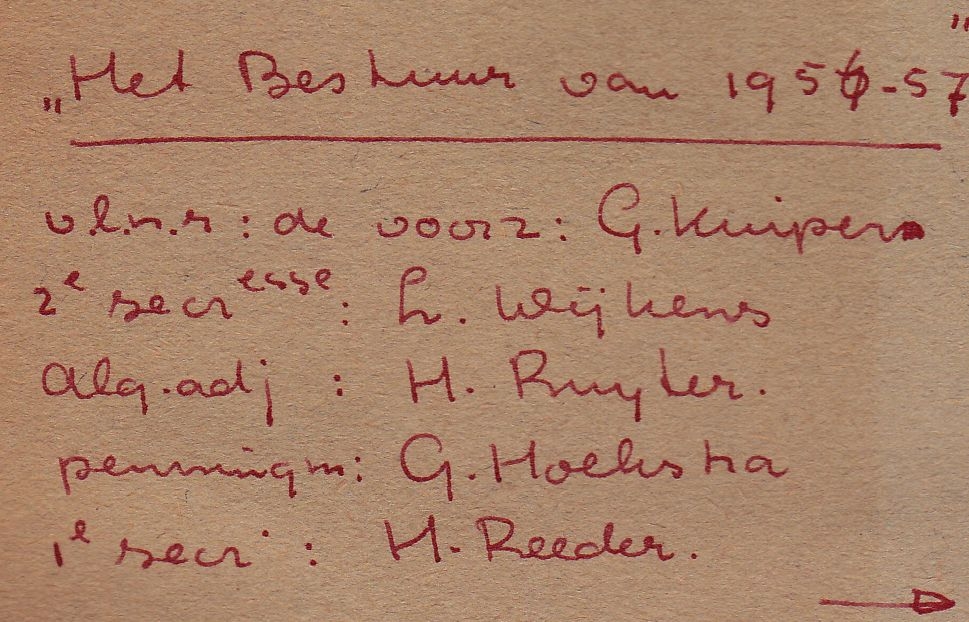 „Het Bestuur van 1956-57”
v.l.n.r: de voorz: G. Kuipers
2e secresse: L. Wijkens
alg.adj: H. Ruyter.
penningm: G. Hoekstra
1e secr: H. Reeder.